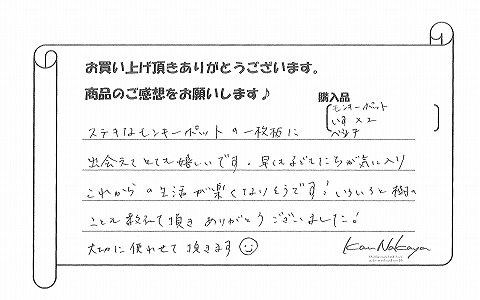 お買い上げ頂きありがとうございます。
商品のご感想をお願いします♪
購入品
モンキーポット
いす×2
ベンチ
ステキなモンキーポットの一枚板に
出会えてとても嬉しいです。早くも子どもたちが気に入り
これからの生活が楽しくなりそうです！いろいろと樹の
ことも教えて頂きありがとうございました！
大切に使わせて頂きます